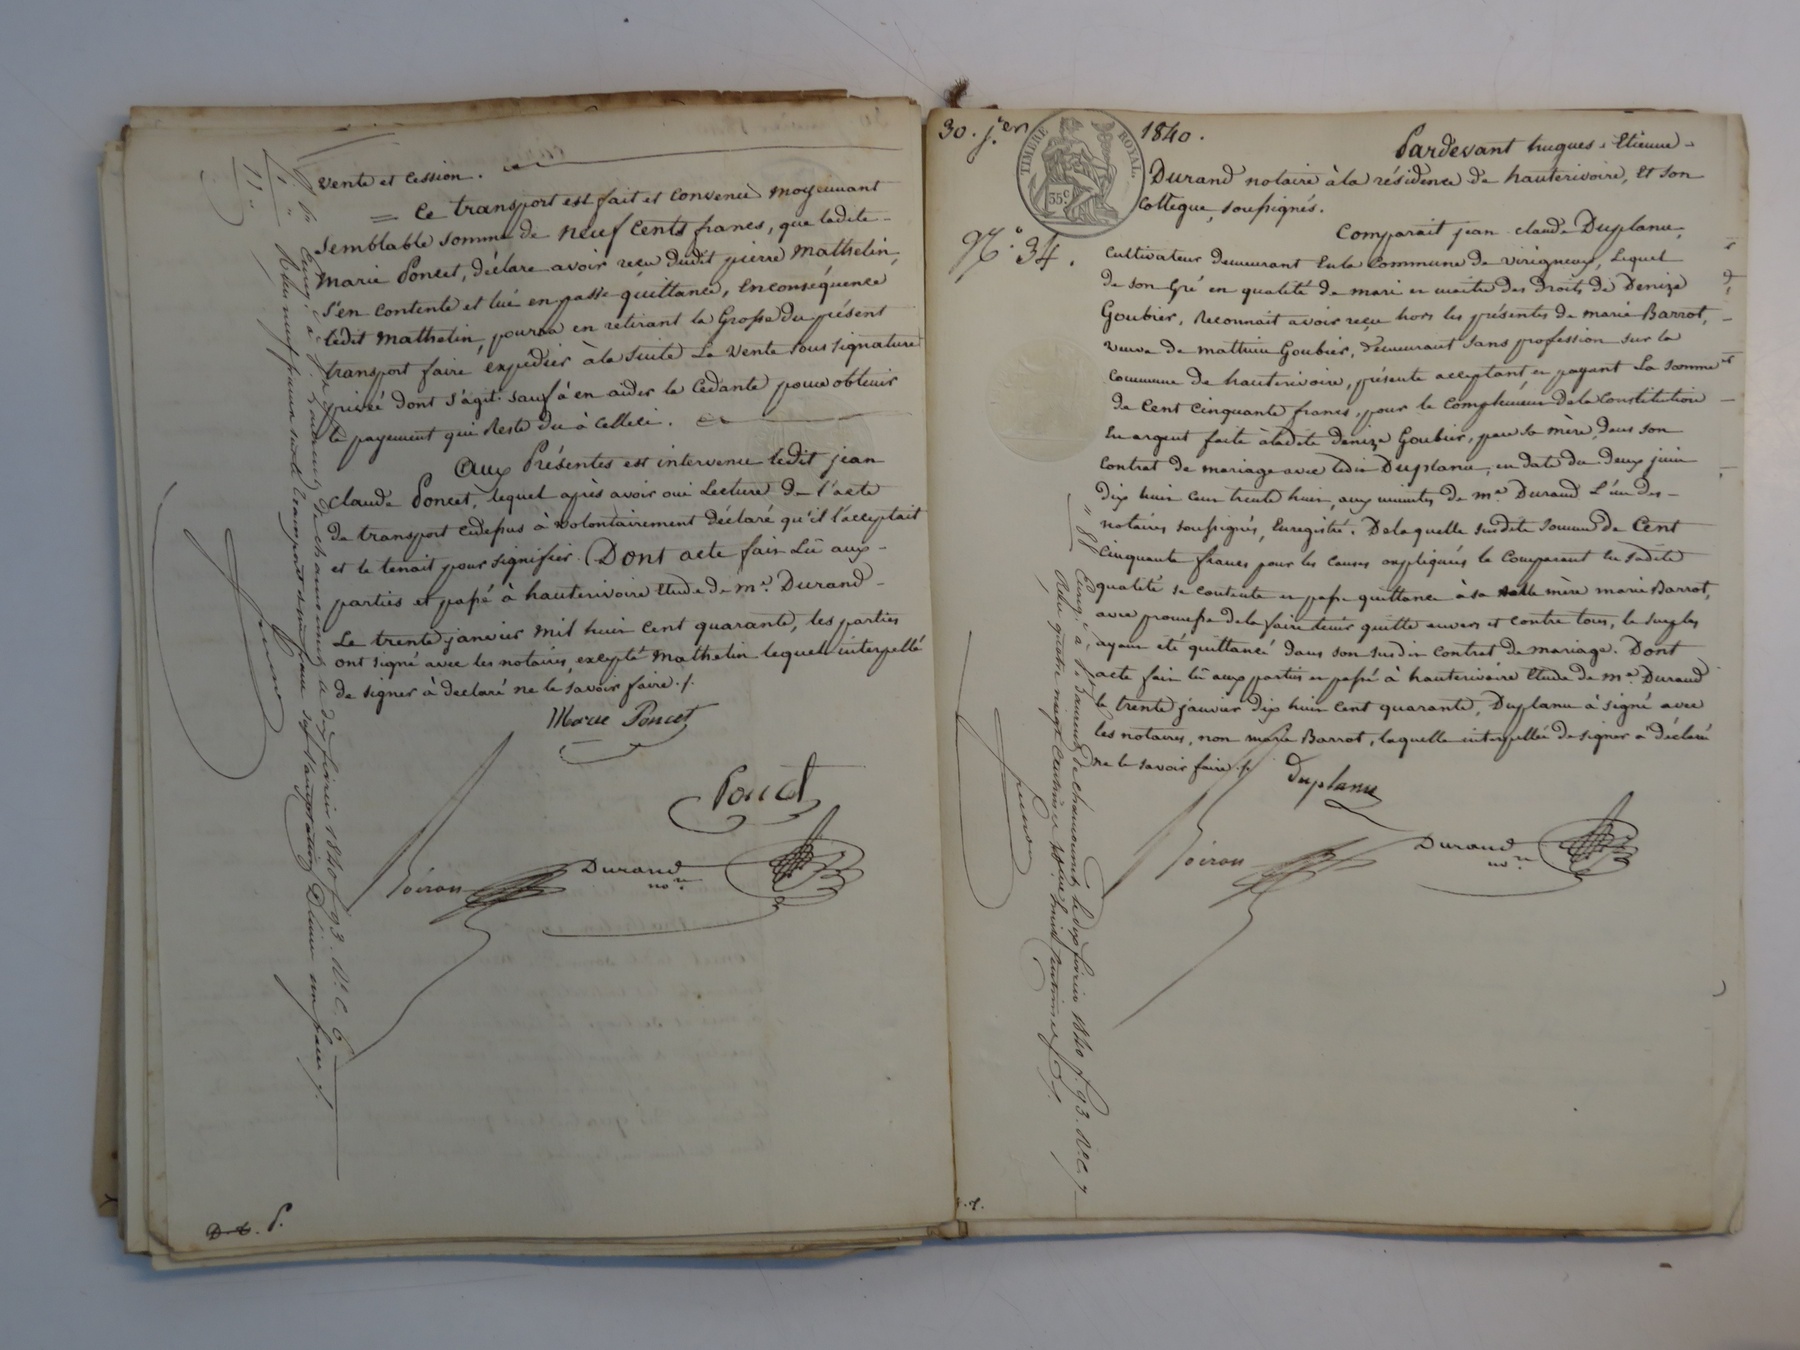 vente et cession.
= Ce transport est fait et convenu moyennant
semblable somme de neuf cents francs, que ladite
Marie Poncet, déclare avoir reçu dudit pierre Mathelin,
s'en contente et lui en passe quittance, En conséquence
ledit Mathelin, pourra en retirant la Grosse du présent
transport faire expédier à la suite la vente sous signature
privée dont s'agit. sauf à en aider la cédante pour obtenir
le payement qui reste du à celleci.
Aux Présentes est intervenu ledit jean
claude Poncet, lequel après avoir oui lecture de l'acte
de transport cidessus à volontairement déclaré qu'il l'acceptait
et le tenait pour signifier. Dont acte fait Lû aux
parties et passé à hauterivoire Etude de Me. Durand
Le trente janvier mil huit cent quarante, les parties
ont signé avec les notaires, excepté Mathelin lequel interpellé
de signer à déclaré ne le savoir faire ./.
Marie Poncet
Poncet
Durand
nore
D. t. P.
30. jer 1840.
TIMBRE ROYAL
35 c
Pardevant hugues Etienne
Durand notaire à la résidence de hauterivoire, Et son
Collègue, soussignés.
No. 34.
Comparait jean claude Duplanu,
cultivateur demeurant En la Commune de virigneux, Lequel
de son Gré en qualité de mari et maitre des Droits de Denize
Goubier, Reconnait avoir reçu hors les présentes de marie Barrot,
veuve de mathieu Goubier, demeurant sans profession sur la
commune de hauterivoire, présente acceptant et payant La somme
de Cent cinquante francs, pour le complément de la Constitution
En argent faite à ladite denize Goubier, par sa mère, dans son
Contrat de mariage avec ledit Duplanu, en date du deux juin
dix huit cent trente huit, aux minutes de me. Durand L'un des
notaires soussignés, Enregistré. De laquelle susdite somme de Cent
Cinquante francs pour les causes expliquées le Comparant en sadite
qualité se contente et passe quittance à sa belle mère marie Barrot,
avec promesse de la faire tenir quitte envers et contre tous, le surplus
ayant été quittancé dans son susdit contrat de mariage. Dont
acte fait lû aux parties et passé à hauterivoire Etude de me. Durand
le trente janvier dix huit Cent quarante, Duplanu à signé avec
les notaires, non marie Barrot, laquelle interpellée de signer à déclaré
ne le savoir faire ./.
Duplanu
Durand
nore